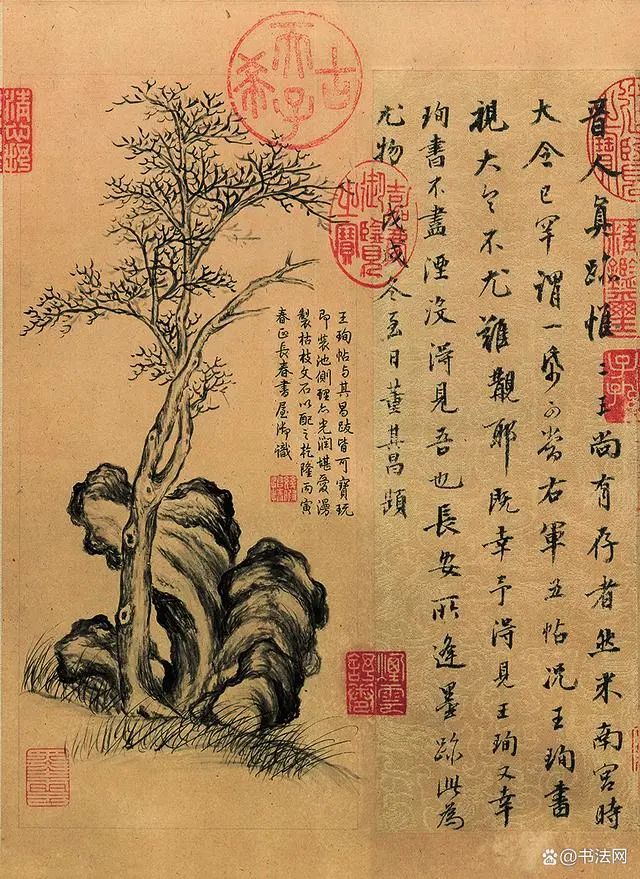 晉人真跡惟二王尚有存者然米南宮時
大令已罕謂一帋可當右軍五帖況王珣書
視大令不尤難覯耶既幸予得見王珣又幸
珣書不盡湮沒得見吾也長安所逢墨跡此為
尤物 戊戌冬至日董其昌題
王珣帖與其昌跋皆可寶玩
即裝池側理亦光潤堪愛漫
製枯枝文石以配之乾隆丙寅
春正長春書屋御識
古希天子
嘉慶御覽之寶
精鑑璽
子孫
百家号/书法网